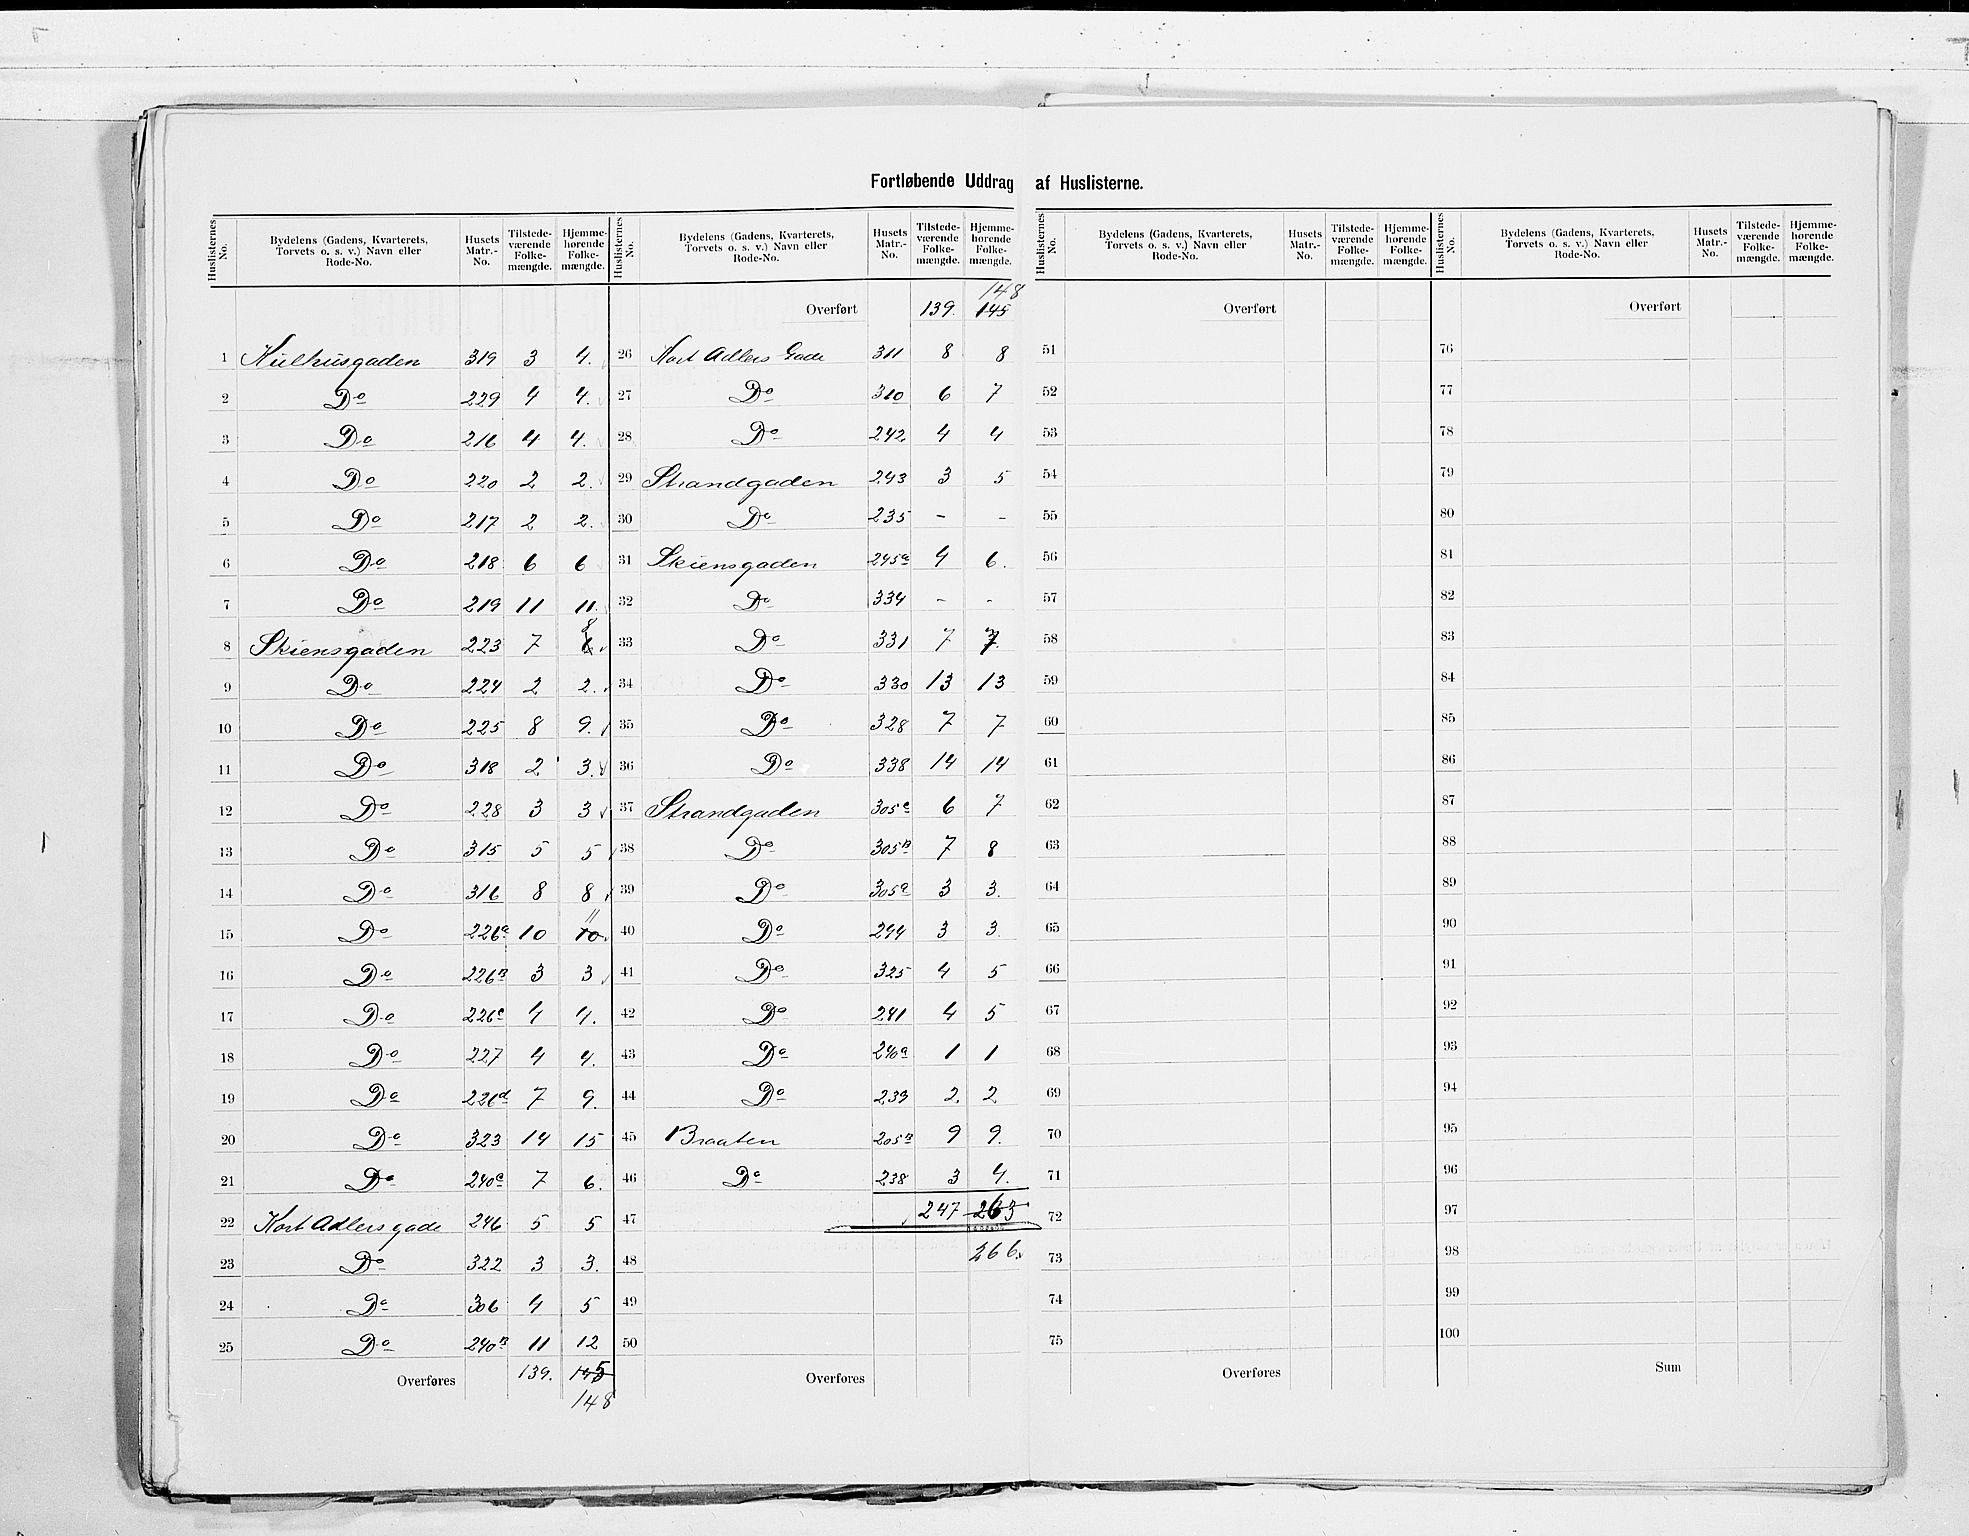 Fortløbende Uddrag af Huslisterne.
Huslisternes No. | Bydelens (Gadens, Kvarterets, Torvets o. s. v.) Navn eller Rode-No. | Husets Matr.-No. | Tilstedeværende Folkemængde. | Hjemmehørende Folkemængde.
1 Kulhusgaden 319 3 4.
2 Do 229 4 4.
3 Do 216 4 4.
4 Do 220 2 2.
5 Do 217 2 2.
6 Do 218 6 6
7 Do 219 11 11.
8 Skiensgaden 223 7 6 8
9 Do 224 2 2.
10 Do 225 8 9.
11 Do 318 2 3.
12 Do 228 3 3
13 Do 315 5 5
14 Do 316 8 8
15 Do 226a 10 10 11
16 Do 226B 3 3
17 Do 226c 4 4.
18 Do 227 4 4.
19 Do 226d 7 9.
20 Do 323 14 15
21 Do 240c 7 6.
22 Kort Adlersgade 246 5 5
23 Do 322 3 3.
24 Do 306 4 5
25 Do 240B 11 12
Overføres 139. 145
148
Huslisternes No. | Bydelens (Gadens, Kvarterets, Torvets o. s. v.) Navn eller Rode-No. | Husets Matr.-No. | Tilstedeværende Folkemængde. | Hjemmehørende Folkemængde.
148
Overført 139. 145
26 Kort Adlers Gade 311 8 8
27 Do 310 6 7
28 Do 242 4 4
29 Strandgaden 243 3 5
30 Do 235 - -
31 Skiensgaden 245a 4 6.
32 Do 334 - -
33 Do 331 7 7.
34 Do 330 13 13
35 Do 328 7 7
36 Do 338 14 14
37 Strandgaden 305c 6 7
38 Do 305B 7 8
39 Do 305a 3 3.
40 Do 244 3 3.
41 Do 325 4 5
42 Do 241 4 5
43 Do 240a 1 1
44 Do 233 2. 2
45 Braaten 205B 9 9.
46 Do 238 3 4.
47 247 263
48 266.
49
50
Overføres
Huslisternes No. | Bydelens (Gadens, Kvarterets, Torvets o. s. v.) Navn eller Rode-No. | Husets Matr.-No. | Tilstedeværende Folkemængde. | Hjemmehørende Folkemængde.
Overført
51
52
53
54
55
56
57
58
59
60
61
62
63
64
65
66
67
68
69
70
71
72
73
74
75
Overføres
Huslisternes No. | Bydelens (Gadens, Kvarterets, Torvets o. s. v.) Navn eller Rode-No. | Husets Matr.-No. | Tilstedeværende Folkemængde. | Hjemmehørende Folkemængde.
Overført
76
77
78
79
80
81
82
83
84
85
86
87
88
89
90
91
92
93
94
95
96
97
98
99
100
Sum